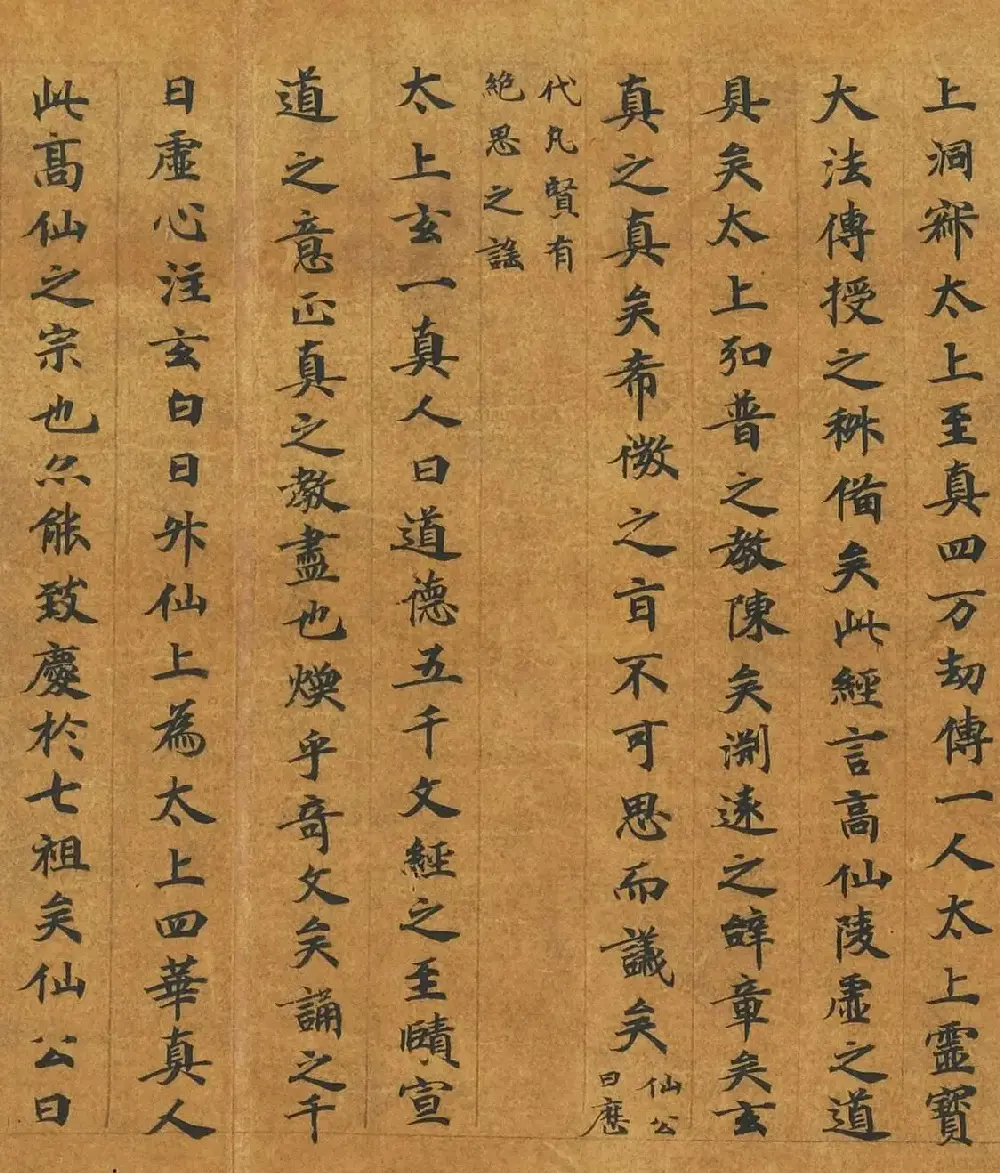 上洞寂太上至真四万劫傳一人太上靈寶
大法傳授之科備矣此經言高仙陵虛之道
具矣太上弘普之教陳矣渕遠之辞章矣玄
真之真矣希微之旨不可思而議矣仙公
曰應
代凡賢有
絶思之謡
太上玄一真人曰道德五千文經之至賾宣
道之意正真之教盡也煥乎奇文矣誦之千
日虛心注玄白日升仙上為太上四華真人
此高仙之宗也亦能致慶於七祖矣仙公曰